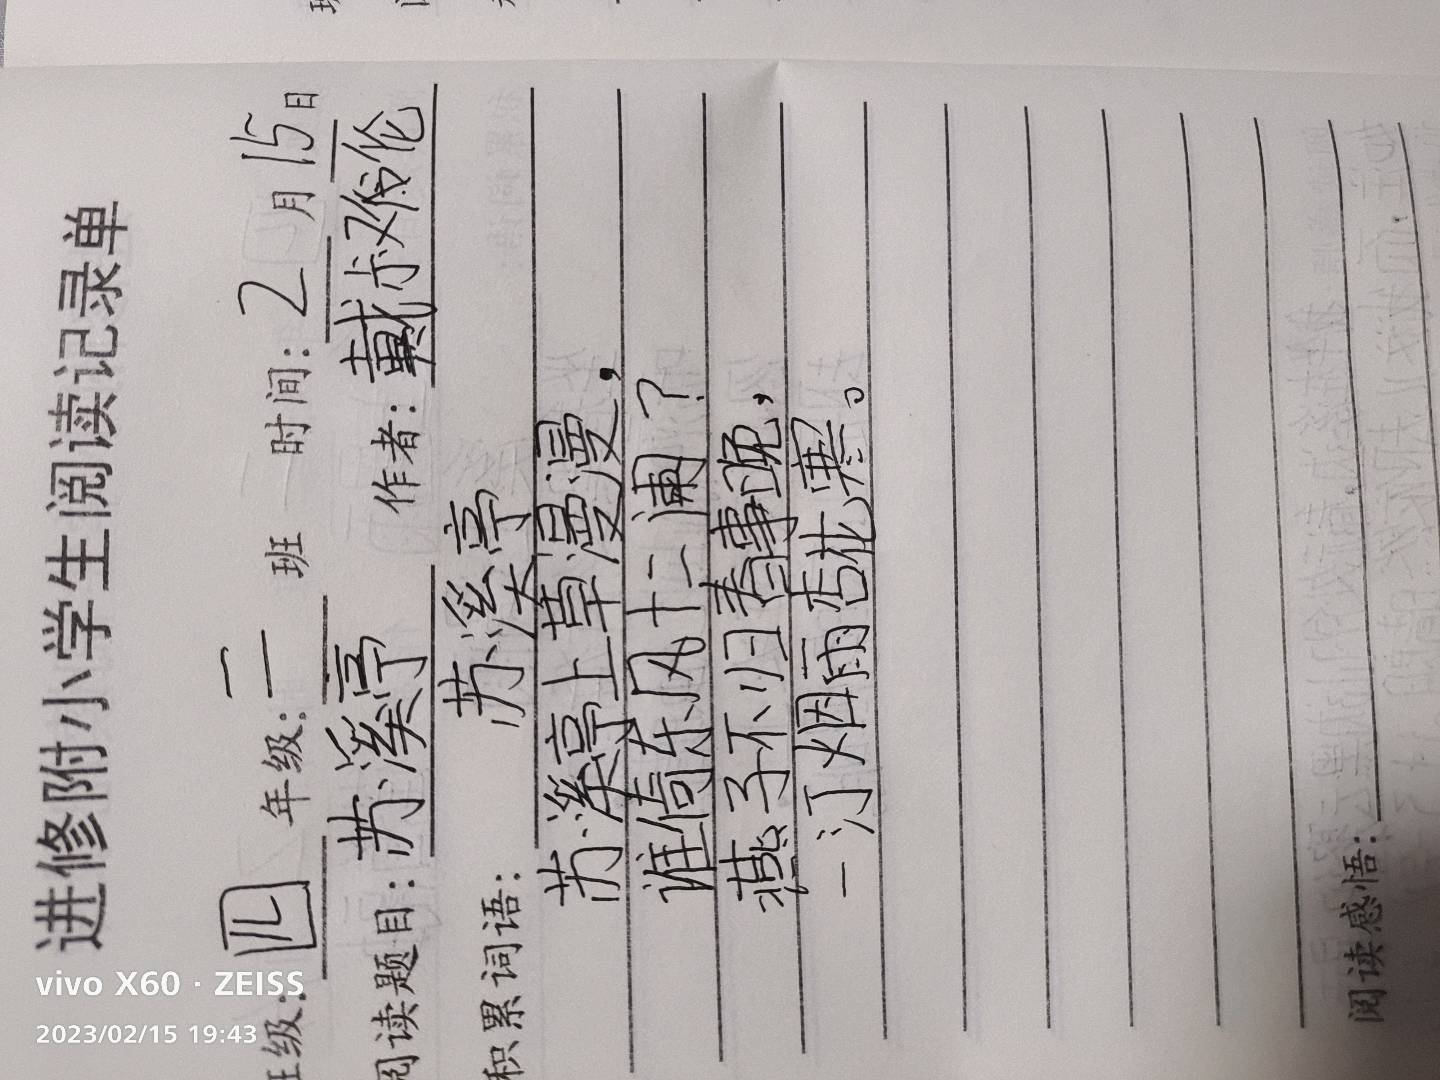 进修附小学生阅读记录单
班级：四 年级：二 班 时间：2 月 15 日
阅读题目：苏溪亭 作者：戴叔伦
积累词语：
苏溪亭
苏溪亭上草漫漫，
谁倚东风十二阑？
燕子不归春事晚，
一汀烟雨杏花寒。
阅读感悟：
vivo X60 · ZEISS
2023/02/15 19:43